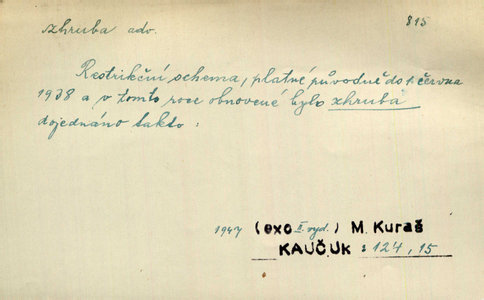 zhruba adv.
815
Restrikční schema, platné původně do 1. června
1938 a v tomto roce obnovené bylo zhruba
dojednáno takto :
1947 (exc II. vyd.) M. Kuraš
KAUČUK : 124, 15